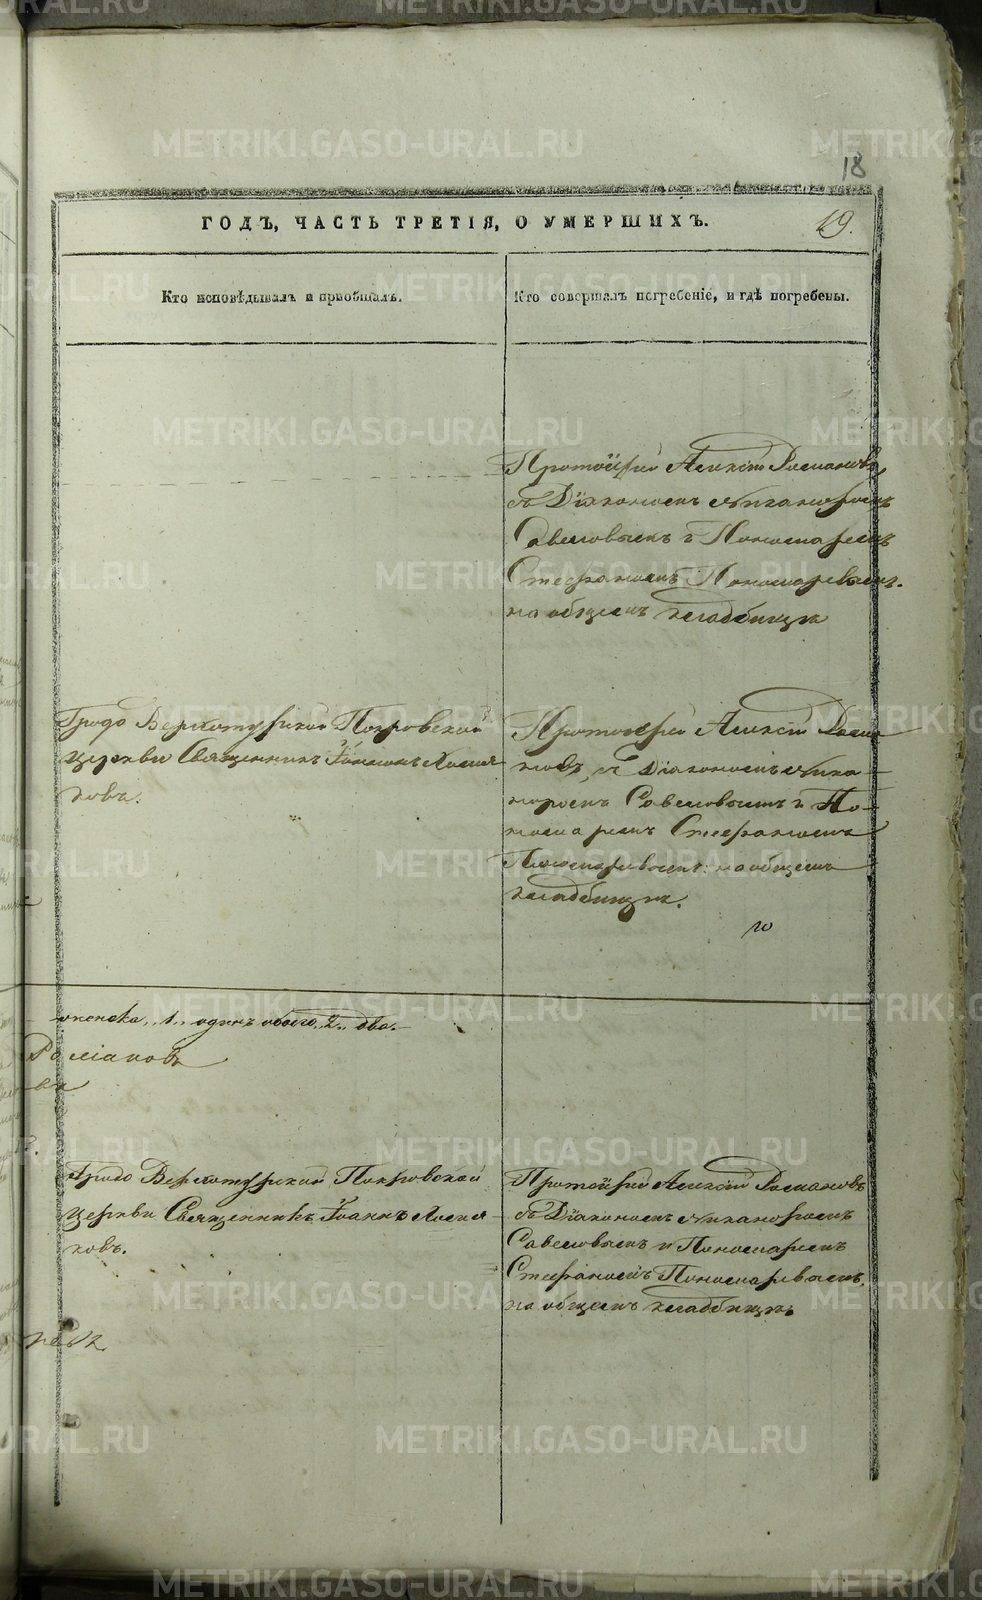 18
ГОДЪ, ЧАСТЬ ТРЕТІЯ, О УМЕРШИХЪ.
19.
Кто исповѣдывалъ и пріобщалъ.
Кто совершалъ погребеніе, и гдѣ погребены.
Протоіерей Алексій Романовъ
съ Діакономъ Никаноромъ
Савеловымъ и Пономаремъ
Стефаномъ Пономаревымъ.
на общемъ кладбищѣ
Градо Верхотурской Покровской
церкви Священникъ Іоаннъ
ковъ.
Протоіерей Алексій Рома
новъ, съ Діакономъ Ника
норомъ Савеловымъ и По
номаремъ Стефаномъ
Пономаревымъ: на общемъ
кладбищѣ.
женска, 1, одинъ обоего, 2, два.
Романовъ
Градо Верхотурской Покровской
церкви Священникъ Іоаннъ
ковъ.
Протоіерей Алексій Романовъ
съ Діакономъ Никаноромъ
Савеловымъ и Пономаремъ
Стефаномъ Пономаревымъ.
на общемъ кладбищѣ
METRIKI.GASO-URAL.RU